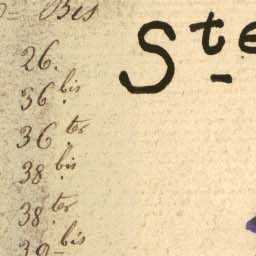 Bis
26.
36 bis
36 ter
38 bis
38 ter
39 bis
Ste